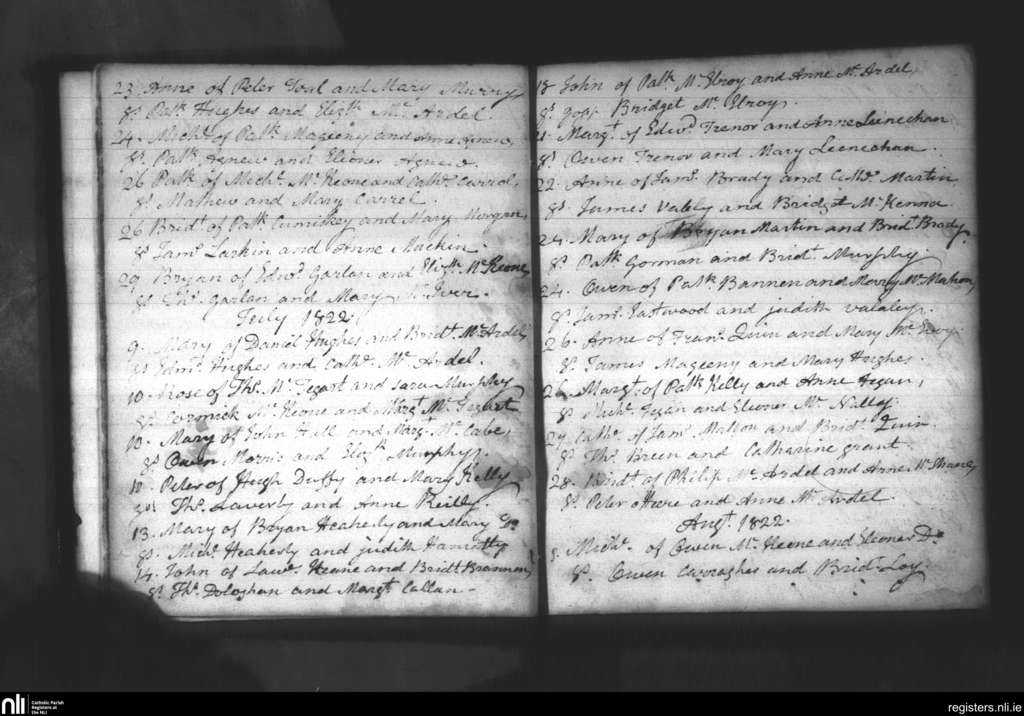 23. Anne of Peter Toul and Mary Murry
Sp. Patk. Hughes and Elizth. Mc Ardel.
24. Michl. of Patk. Mageeny and Anne Agnew,
Sp. Patk. Agnew and Eleoner Agnew.
26 Patk. of Michl. Mc Keone and Cathe. Carrol,
Sp. Mathew and Mary Carrel.
26 Bridt. of Patk. Cumiskey and Mary Morgan,
Sp. Jams. Larkin and Anne Mackin.
29 Bryan of Edwd. Garlan and Elizth. Mc Keone,
Sp. Garlan and Mary Mc Iver.
July 1822.
9. Mary of Daniel Hughes and Bridt. Mc Ardel,
Sp. Edmd. Hughes and Cathe. Mc Ardel.
10. Rose of Ths. Mc Tegart and Sara Murphy
Sp. Cormick Mc Keone and Margt. Mc Tegart
10. Mary of John Hall and Margt. Mc Cabe,
Sp. Owen Morris and Elizth. Murphy.
10. Peter of Hugh Duffy and Mary Kelly
Sp. Ths. Laverty and Anne Reilly.
13. Mary of Bryan Heahesly and Mary Do
Sp. Michl. Heahesly and judith
14. John of Lawe. Keane and Bridt Brannen,
Sp. Ths. Dologhan and Margt. Callan-
18 John of Patk. Mc Elroy and Anne Mc Ardel,
Sp. Goss. Bridget Mc Elroy.
21. Margt. of Edwd. Trenor and Anne Leenechan
Sp. Owen Trenor and Mary Leenechan.
22. Anne of Jams. Brady and Martin
Sp. James Valely and Bridget Mc Kenna
24. Mary of Bryan Martin and Bridt. Brady.
Sp. Patk. Gorman and Bridt. Murphy
24. Owen of Patk. Bannen and Mary Mc Mahon,
Sp. Jams. Eastwood and judith valaley.
26. Anne of Frans. Quin and Mary Mc Evoy
Sp. James Mageeny and Mary Hughes.
26. Margt. of Patk. Kelly and Anne Fegan,
Sp. Michl. Fegan and Eleoner Mc Nally.
27. Cathe. of Jams. Mallon and Bridt. Quin.
Sp. Ths. Breen and Catharine grant.
28. Bridt. of Philip Mc Ardel and Anne Mc Shane,
Sp. Peter Hare and Anne Mc Ardel.
Augt. 1822.
Michl. of Owen Mc Keone and Eleoner Do
Sp. Owen Carraghes and Bridt. Loy.
nli
Catholic Parish
Registers at
the NLI
registers.nli.ie